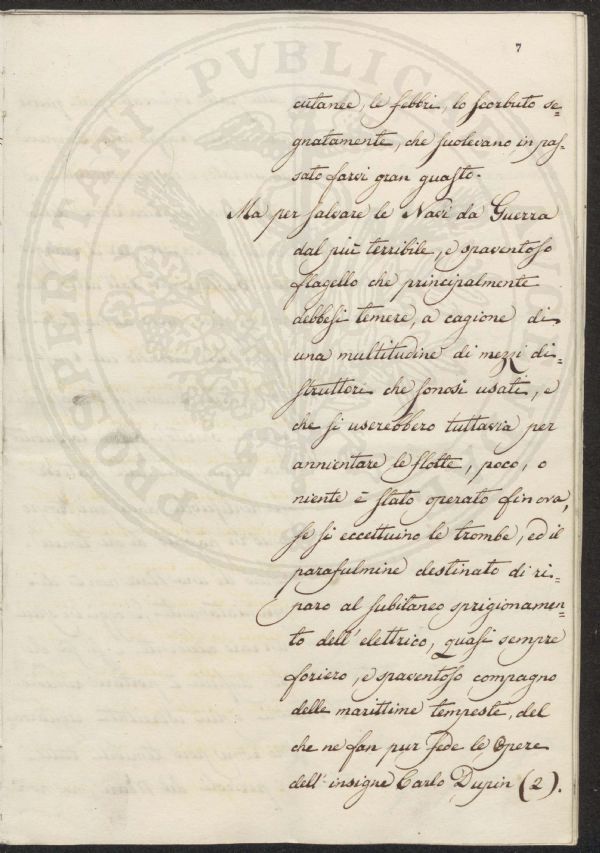 7
cutanee, le febbri, lo scorbuto se=
gnatamente, che suolevano in pas=
sato farvi gran guasto.
Ma per salvare le Navi da Guerra
dal più terribile, e spaventoso
flagello che principalmente
debbesi temere, a cagione di
una moltitudine di mezzi di=
struttori che sonosi usati, e
che si userebbero tuttavia per
annientare le flotte, poco, o
niente è stato operato finova,
se si eccettuino le trombe, ed il
parafulmine destinato di ri=
paro al subitaneo sprigionamen=
to dell'elettrico, quasi sempre
foriero, e spaventoso compagno
delle marittime tempeste, del
che ne fan pur fede le Opere
dell'insigne Carlo Dupin (2).
PROSPERITATI PVBLICAE